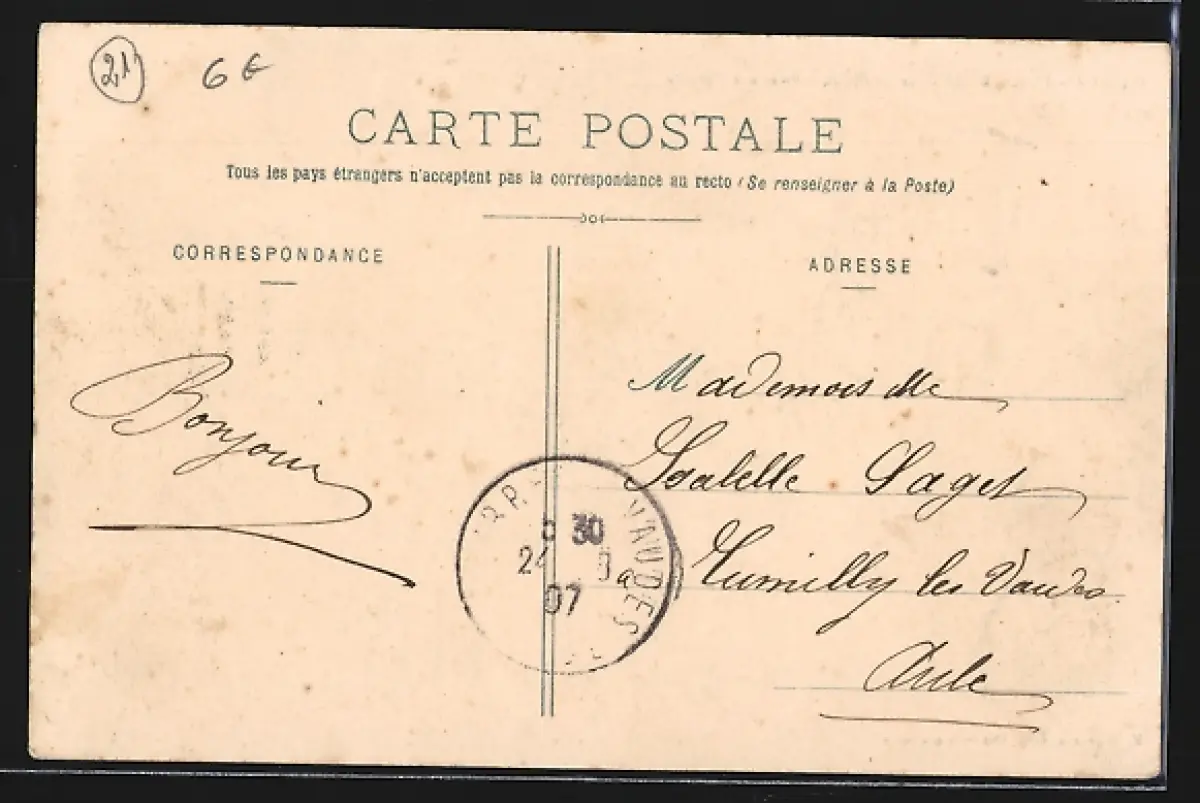 21
6 €
CARTE POSTALE
Tous les pays étrangers n'acceptent pas la correspondance au recto (Se renseigner à la Poste)
CORRESPONDANCE
ADRESSE
Bonjour
Mademoiselle
Isabelle Saget
à Rumilly les Vaudes
Aube
VAUDES
30
24
07